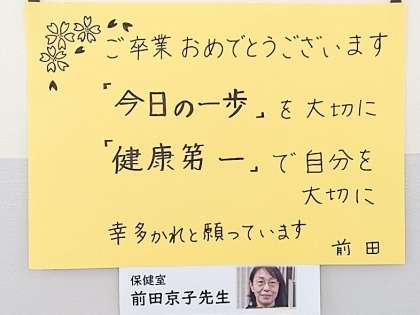 ご卒業おめでとうございます
「今日の一歩」を大切に
「健康第一」で自分を
大切に
幸多かれと願っています
前田
保健室
前田京子先生